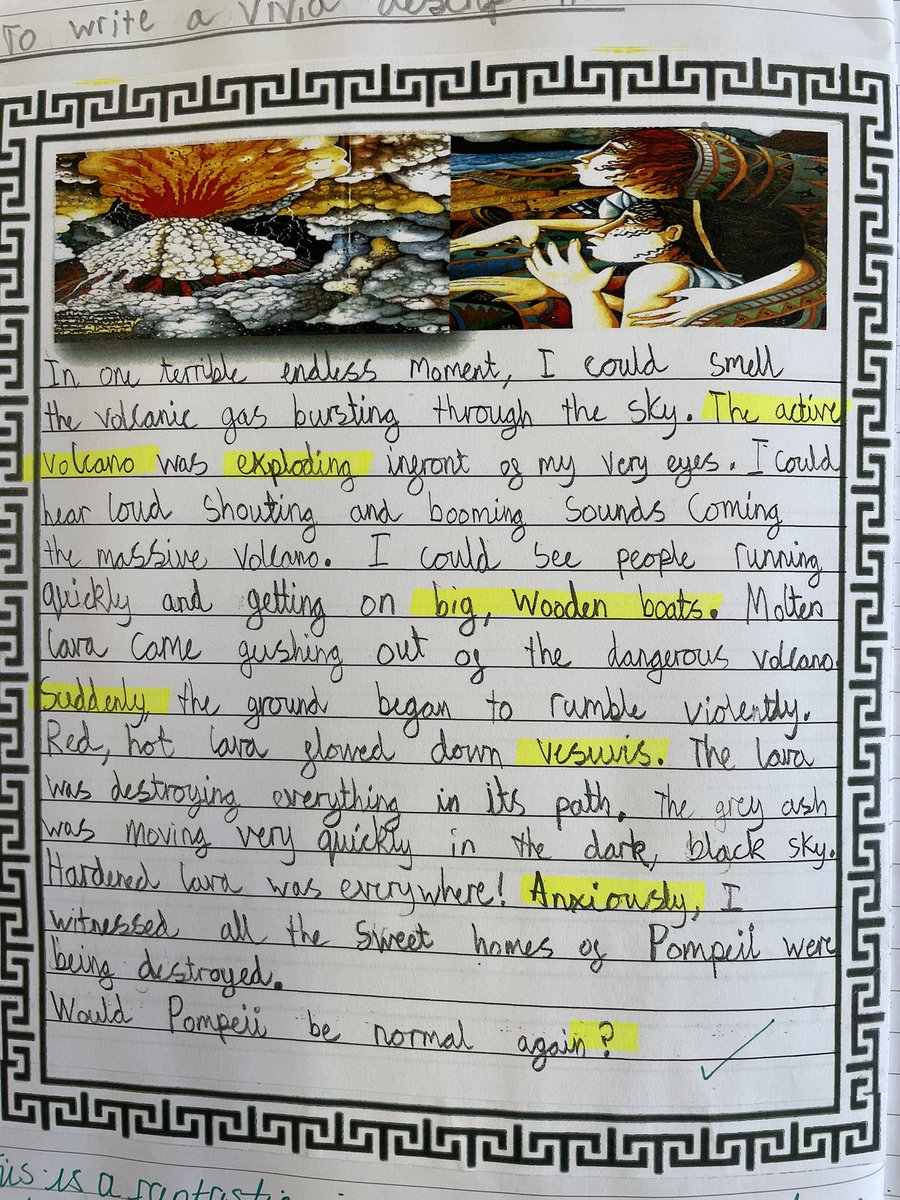 To write a vivid
In one terrible endless moment, I could smell
the volcanic gas bursting through the sky. The active
volcano was exploding infront of my very eyes. I could
hear loud shouting and booming sounds coming
the massive volcano. I could see people running
quickly and getting on big, wooden boats. Molten
lava came gushing out of the dangerous volcano.
Suddenly, the ground began to rumble violently.
Red, hot lava glowed down vesuvis. The lava
was destroying everything in its path. The grey ash
was moving very quickly in the dark, black sky.
Hardened lava was everywhere! Anxiously, I
witnessed all the sweet homes of Pompeii were
being destroyed.
Would Pompeii be normal again?
is a fantastic